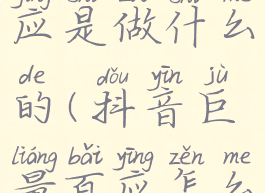 应是做什么
de dǒu yīn jù
的(抖音巨
liáng bǎi yīng zěn me
量百应怎么